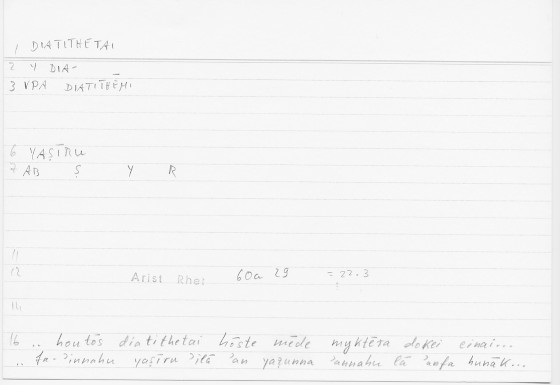 1 DIATITHETAI
2 Y DIA-
3 VPA DIATITHĒMI
6 YAṢĪRU
7 AB Ṣ Y R
11
12 Arist Rhet 60a 29 = 27.3
14
16 .. houtōs diatithetai hōste mēde myktēra dokei einai...
.. fa-ʾinnahu yaṣīru ʾilā ʾan yaẓunna ʾannahu lā ʾanfa hunāk...